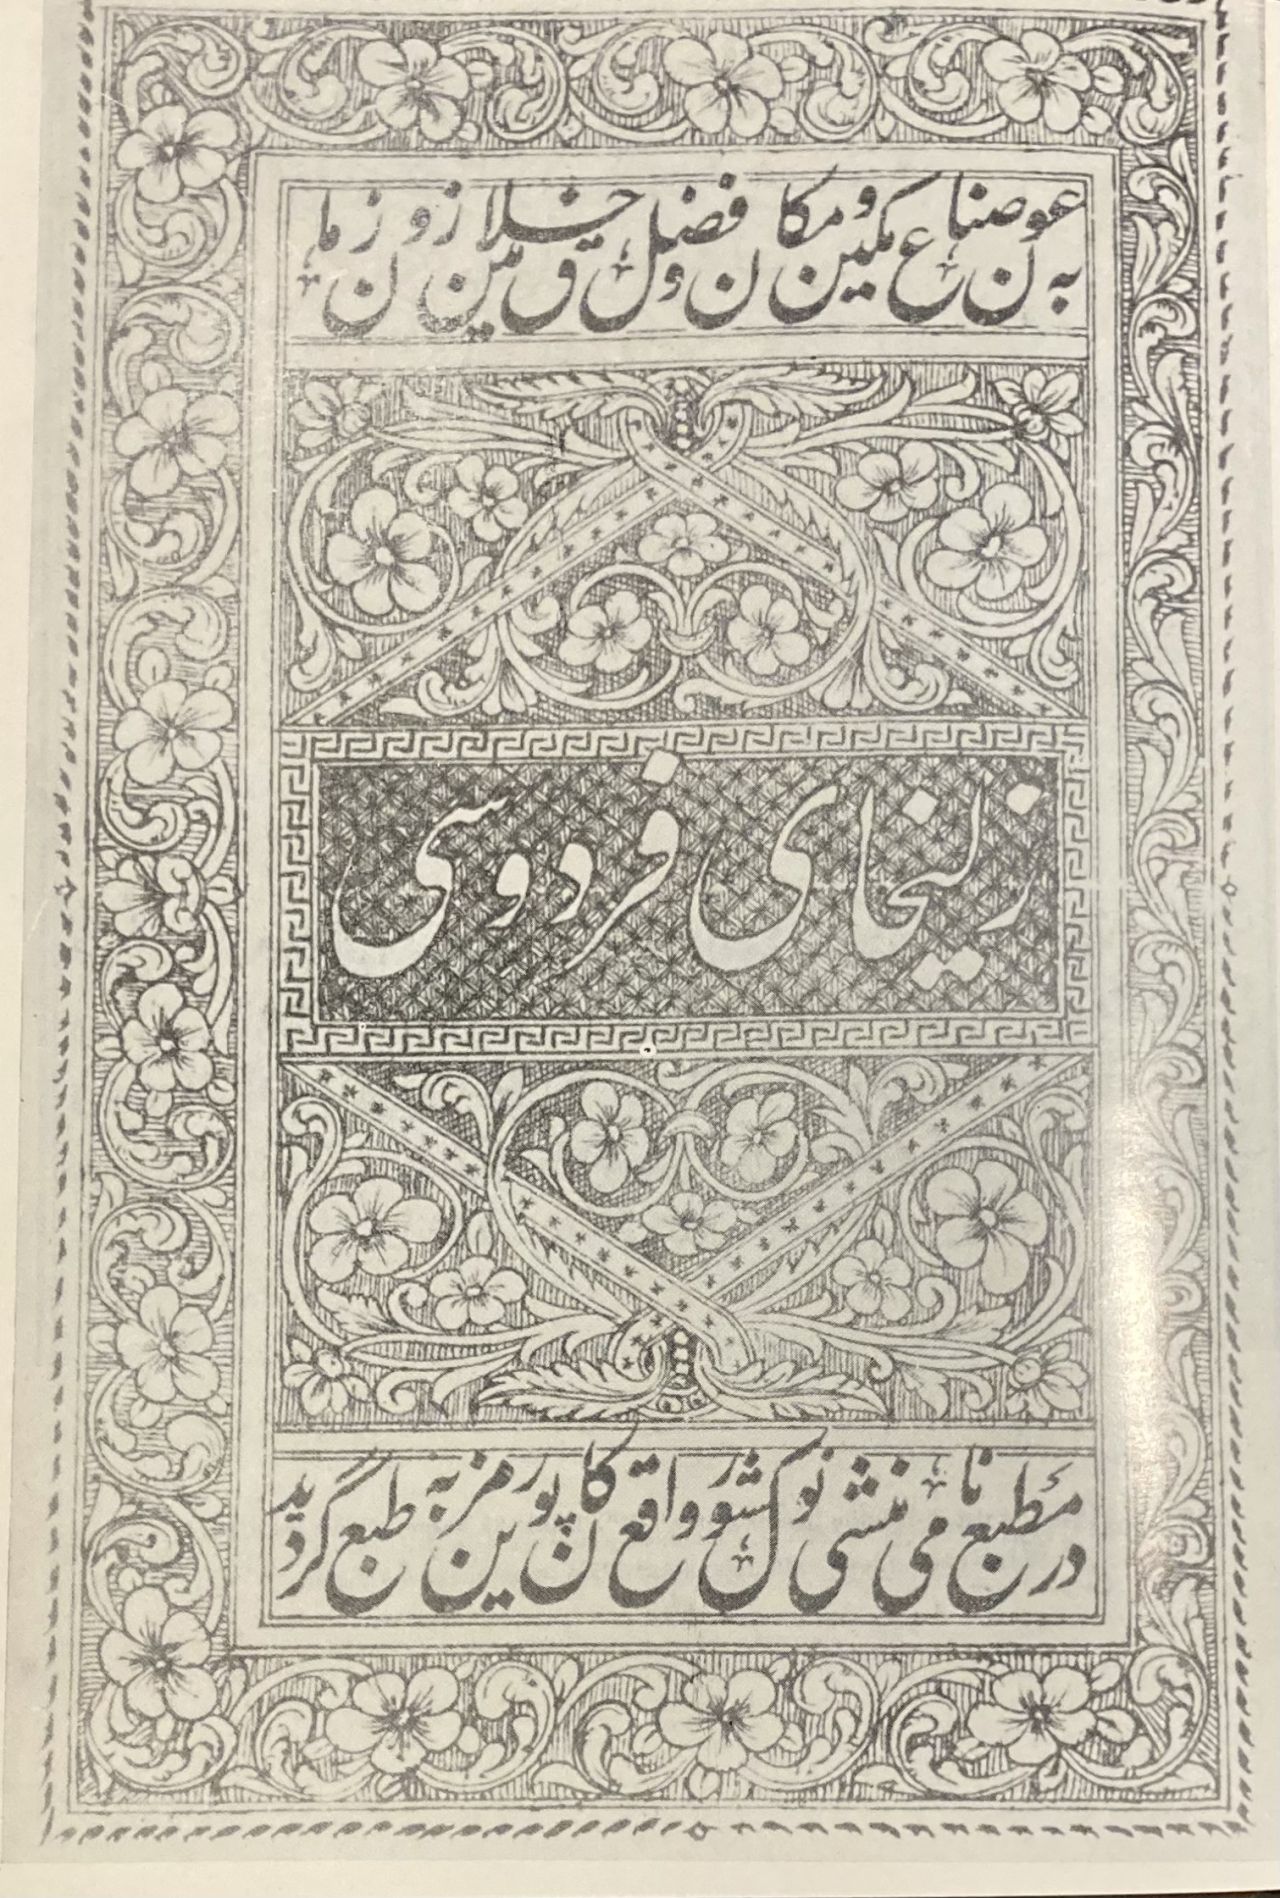 به عون صناع مکین و مکان و فضل خلاق زمین و زمان
زلیخای فردوسی
در مطبع نامی منشی نول کشور واقع کانپور مزین به طبع گردید